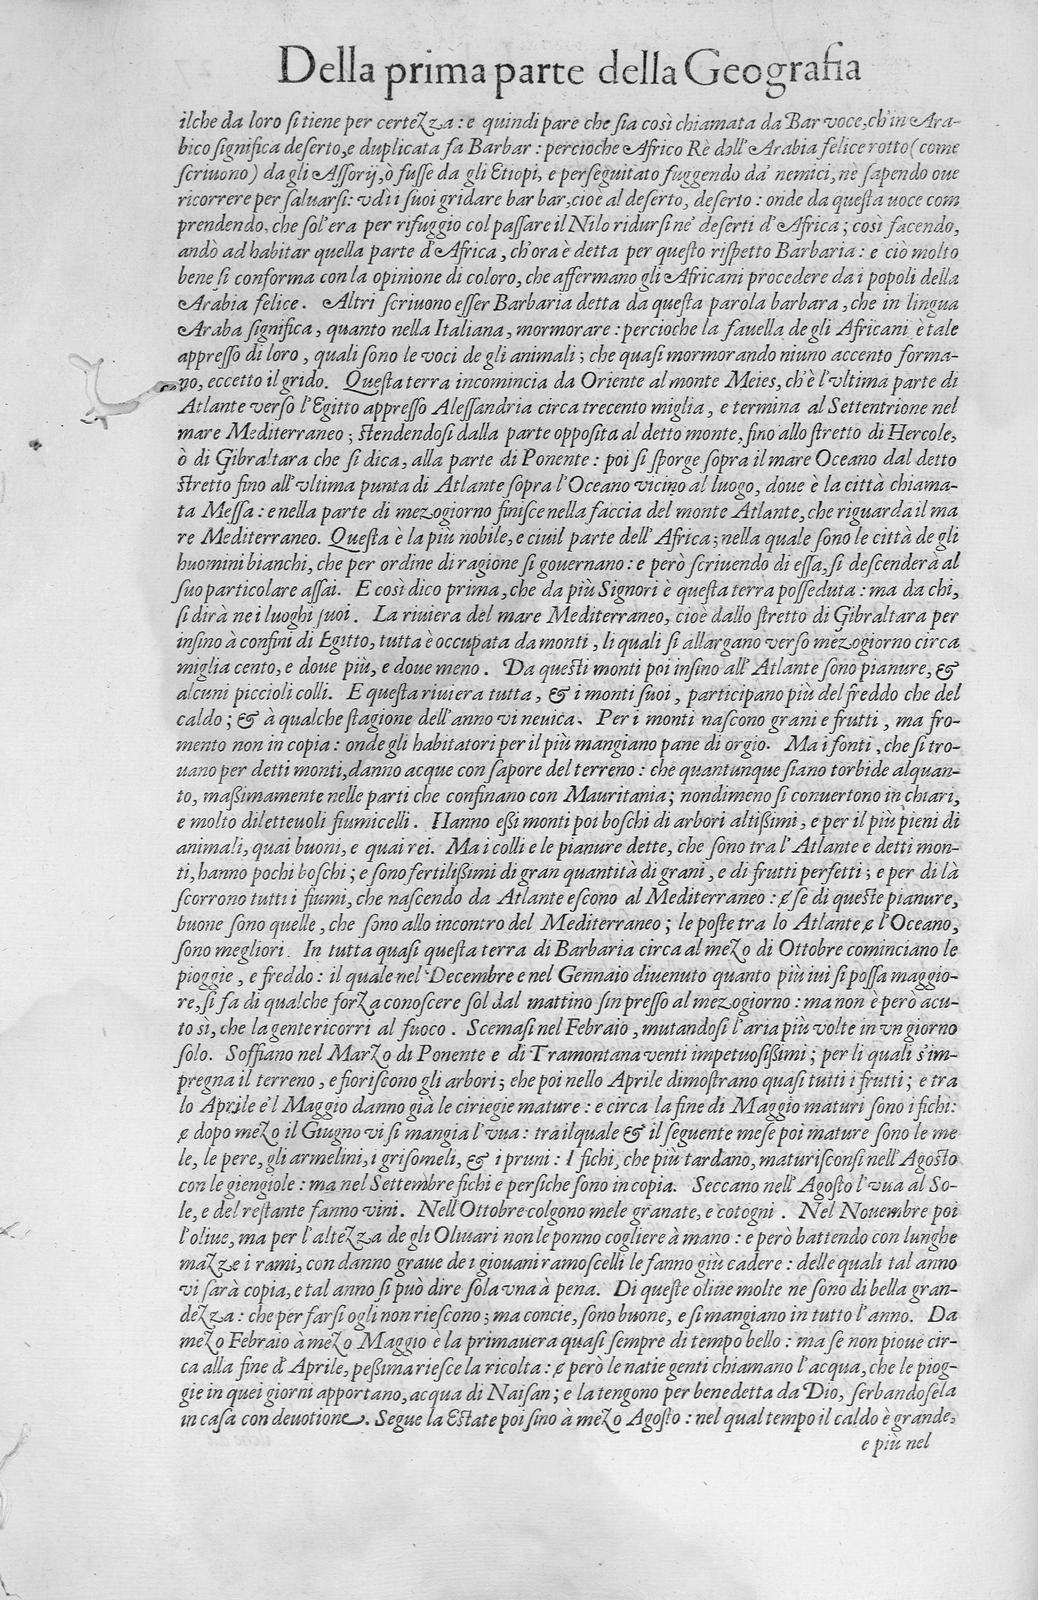 Della prima parte della Geografia
ilche da loro si tiene per certezza: e quindi pare che sia così chiamata da Bar voce, ch'in Ara-
bico significa deserto, e duplicata fa Barbar: percioche Africo Rè dall'Arabia felice rotto (come
scriuono) da gli Assorij, ò fusse da gli Etiopi, e perseguitato fuggendo da' nemici, nè sapendo oue
ricorrere per saluarsi: vdì i suoi gridare bar bar, cioè al deserto, deserto: onde da questa uoce com
prendendo, che sol'era per rifuggio col passare il Nilo ridursi ne' deserti d'Africa; così facendo,
andò ad habitar quella parte d'Africa, ch'ora è detta per questo rispetto Barbaria: e ciò molto
bene si conforma con la opinione di coloro, che affermano gli Africani procedere da i popoli della
Arabia felice. Altri scriuono esser Barbaria detta da questa parola barbara, che in lingua
Araba significa, quanto nella Italiana, mormorare: percioche la fauella de gli Africani è tale
appresso di loro, quali sono le voci de gli animali; che quasi mormorando niuno accento forma-
no, eccetto il grido. Questa terra incomincia da Oriente al monte Meies, ch'è l'vltima parte di
Atlante verso l'Egitto appresso Alessandria circa trecento miglia, e termina al Settentrione nel
mare Mediterraneo; stendendosi dalla parte opposita al detto monte, fino allo stretto di Hercole,
ò di Gibraltara che si dica, alla parte di Ponente: poi si sporge sopra il mare Oceano dal detto
stretto fino all'vltima punta di Atlante sopra l'Oceano vicino al luogo, doue è la città chiama-
ta Messa: e nella parte di mezogiorno finisce nella faccia del monte Atlante, che riguarda il ma
re Mediterraneo. Questa è la più nobile, e ciuil parte dell'Africa; nella quale sono le città de gli
huomini bianchi, che per ordine di ragione si gouernano: e però scriuendo di essa, si descenderà al
suo particolare assai. E così dico prima, che da più Signori è questa terra posseduta: ma da chi,
si dirà ne i luoghi suoi. La riuiera del mare Mediterraneo, cioè dallo stretto di Gibraltara per
insino à confini di Egitto, tutta è occupata da monti, li quali si allargano verso mezogiorno circa
miglia cento, e doue più, e doue meno. Da questi monti poi insino all'Atlante sono pianure, &
alcuni piccioli colli. E questa riuiera tutta, & i monti suoi, participano più del freddo che del
caldo; & à qualche stagione dell'anno vi neuica. Per i monti nascono grani e frutti, ma fro-
mento non in copia: onde gli habitatori per il più mangiano pane di orgio. Ma i fonti, che si tro-
uano per detti monti, danno acque con sapore del terreno: che quantunque siano torbide alquan-
to, massimamente nelle parti che confinano con Mauritania; nondimeno si conuertono in chiari,
e molto diletteuoli fiumicelli. Hanno essi monti poi boschi di arbori altissimi, e per il più pieni di
animali, quai buoni, e quai rei. Ma i colli e le pianure dette, che sono tra l'Atlante e detti mon-
ti, hanno pochi boschi; e sono fertilissimi di gran quantità di grani, e di frutti perfetti; e per di là
scorrono tutti i fiumi, che nascendo da Atlante escono al Mediterraneo: e se di queste pianure,
buone sono quelle, che sono allo incontro del Mediterraneo; le poste tra lo Atlante e l'Oceano,
sono megliori. In tutta quasi questa terra di Barbaria circa al mezo di Ottobre cominciano le
pioggie, e freddo: il quale nel Decembre e nel Gennaio diuenuto quanto più iui si possa maggio-
re, si fa di qualche forza conoscere sol dal mattino sin presso al mezogiorno: ma non è però acu-
to sì, che la gente ricorri al fuoco. Scemasi nel Febraio, mutandosi l'aria più volte in vn giorno
solo. Soffiano nel Marzo di Ponente e di Tramontana venti impetuosissimi; per li quali s'im-
pregna il terreno, e fioriscono gli arbori; ehe poi nello Aprile dimostrano quasi tutti i frutti; e tra
lo Aprile e'l Maggio danno già le ciriegie mature: e circa la fine di Maggio maturi sono i fichi:
e dopo mezo il Giugno vi si mangia l'vua: tra il quale & il seguente mese poi mature sono le me-
le, le pere, gli armelini, i grisomeli, & i pruni: I fichi, che più tardano, maturisconsi nell'Agosto
con le giengiole: ma nel Settembre fichi e persiche sono in copia. Seccano nell'Agosto l'vua al So-
le, e del restante fanno vini. Nell'Ottobre colgono mele granate, e cotogni. Nel Nouembre poi
l'oliue, ma per l'altezza de gli Oliuari non le ponno cogliere à mano: e però battendo con lunghe
mazze i rami, con danno graue de i giouani ramoscelli le fanno giù cadere: delle quali tal anno
vi sarà copia, e tal anno si può dire sola vna à pena. Di queste oliue molte ne sono di bella gran-
dezza: che per farsi ogli non riescono; ma concie, sono buone, e si mangiano in tutto l'anno. Da
mezo Febraio à mezo Maggio è la primauera quasi sempre di tempo bello: ma se non pioue cir-
ca alla fine d'Aprile, pessima riesce la ricolta: e però le natie genti chiamano l'acqua, che le piog-
gie in quei giorni apportano, acqua di Naisan; e la tengono per benedetta da Dio, serbandosela
in casa con deuotione. Segue la Estate poi sino à mezo Agosto: nel qual tempo il caldo è grande,
e più nel